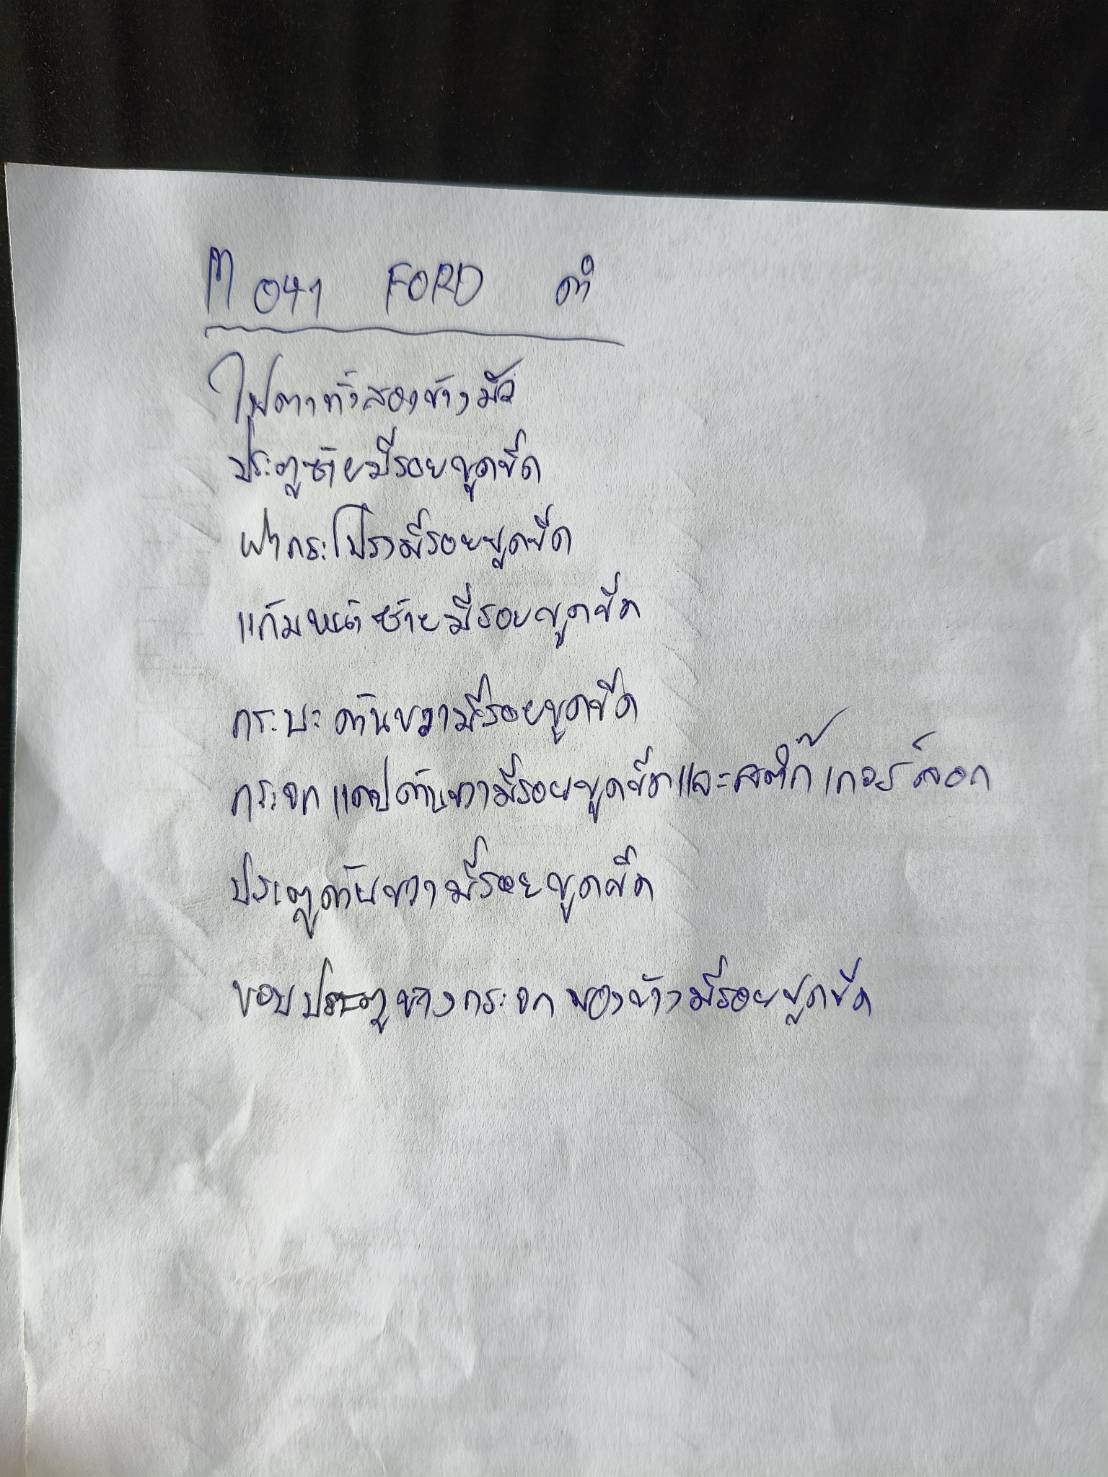 M 041 FORD ดำ
ไฟตาทั้งสองข้างมัว
ประตูซ้ายมีรอยขูดขีด
ฝากระโปรงมีรอยขูดขีด
แก้มหน้าซ้ายมีรอยขูดขีด
กระบะด้านขวามีรอยขูดขีด
กระจกแคปด้านขวามีรอยขูดขีดและสติ๊กเกอร์ลอก
ประตูด้านขวามีรอยขูดขีด
ขอบประตูยางกระจกสองข้างมีรอยขูดขีด